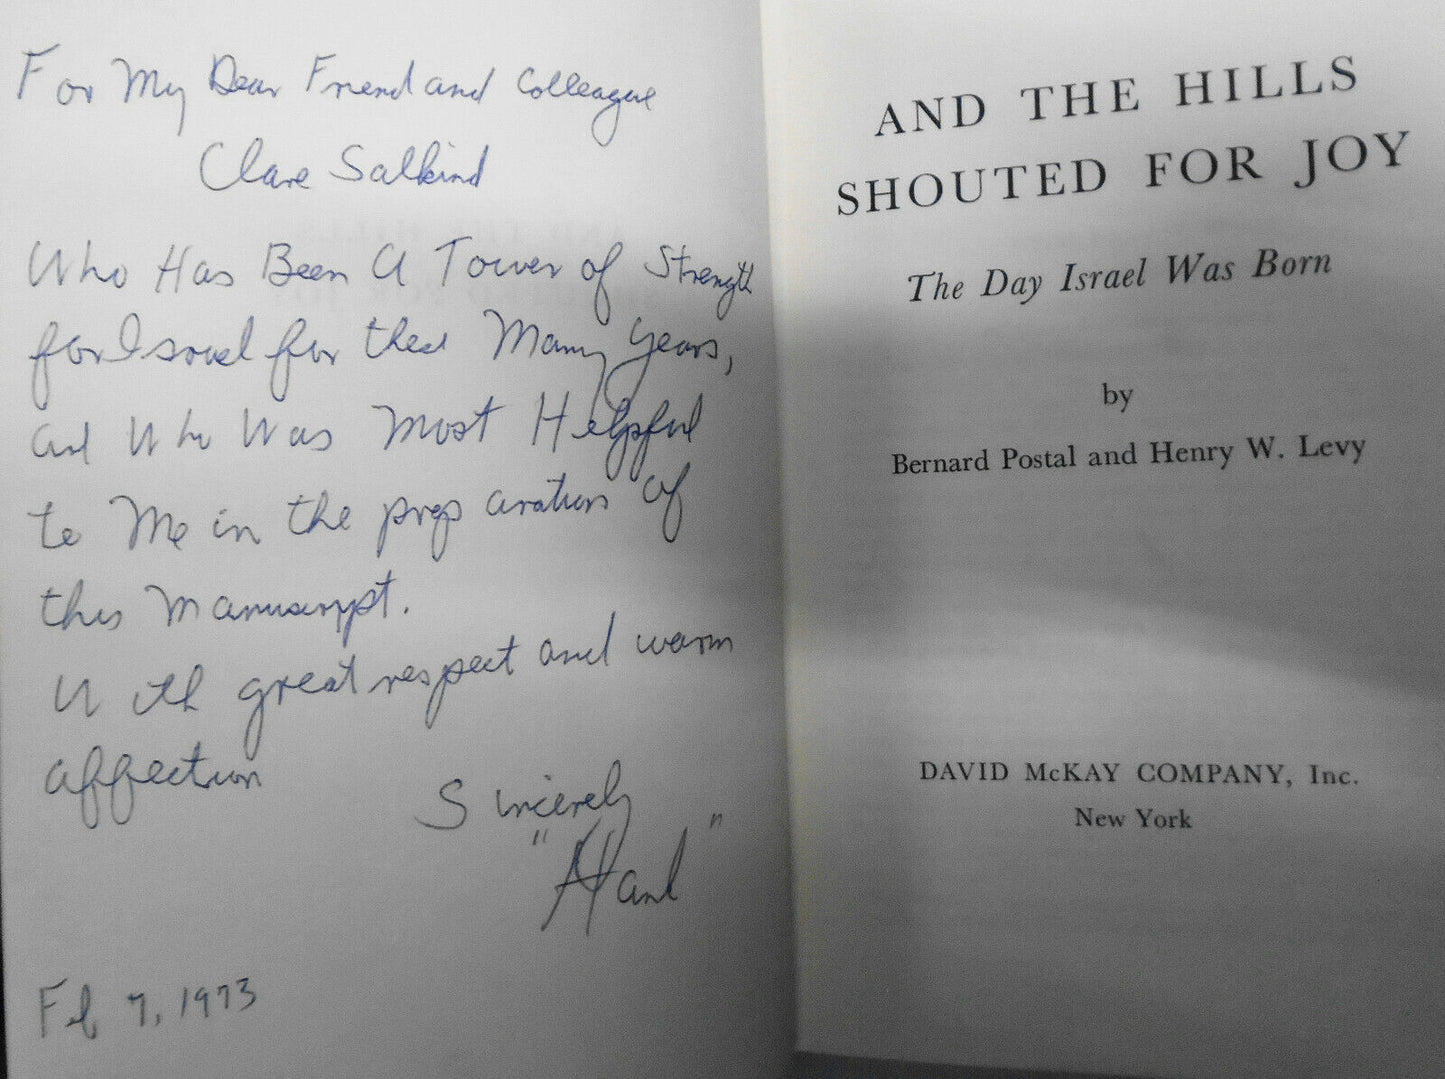 For My Dear Friend and Colleague
Clare Salkind
Who Has Been A Tower of Strength
for Israel for these Many Years,
and Who Was Most Helpful
to Me in the preparation of
this Manuscript.
With great respect and warm
affection
Sincerely
Feb 7, 1973
AND THE HILLS
SHOUTED FOR JOY
The Day Israel Was Born
by
Bernard Postal and Henry W. Levy
DAVID McKAY COMPANY, Inc.
New York